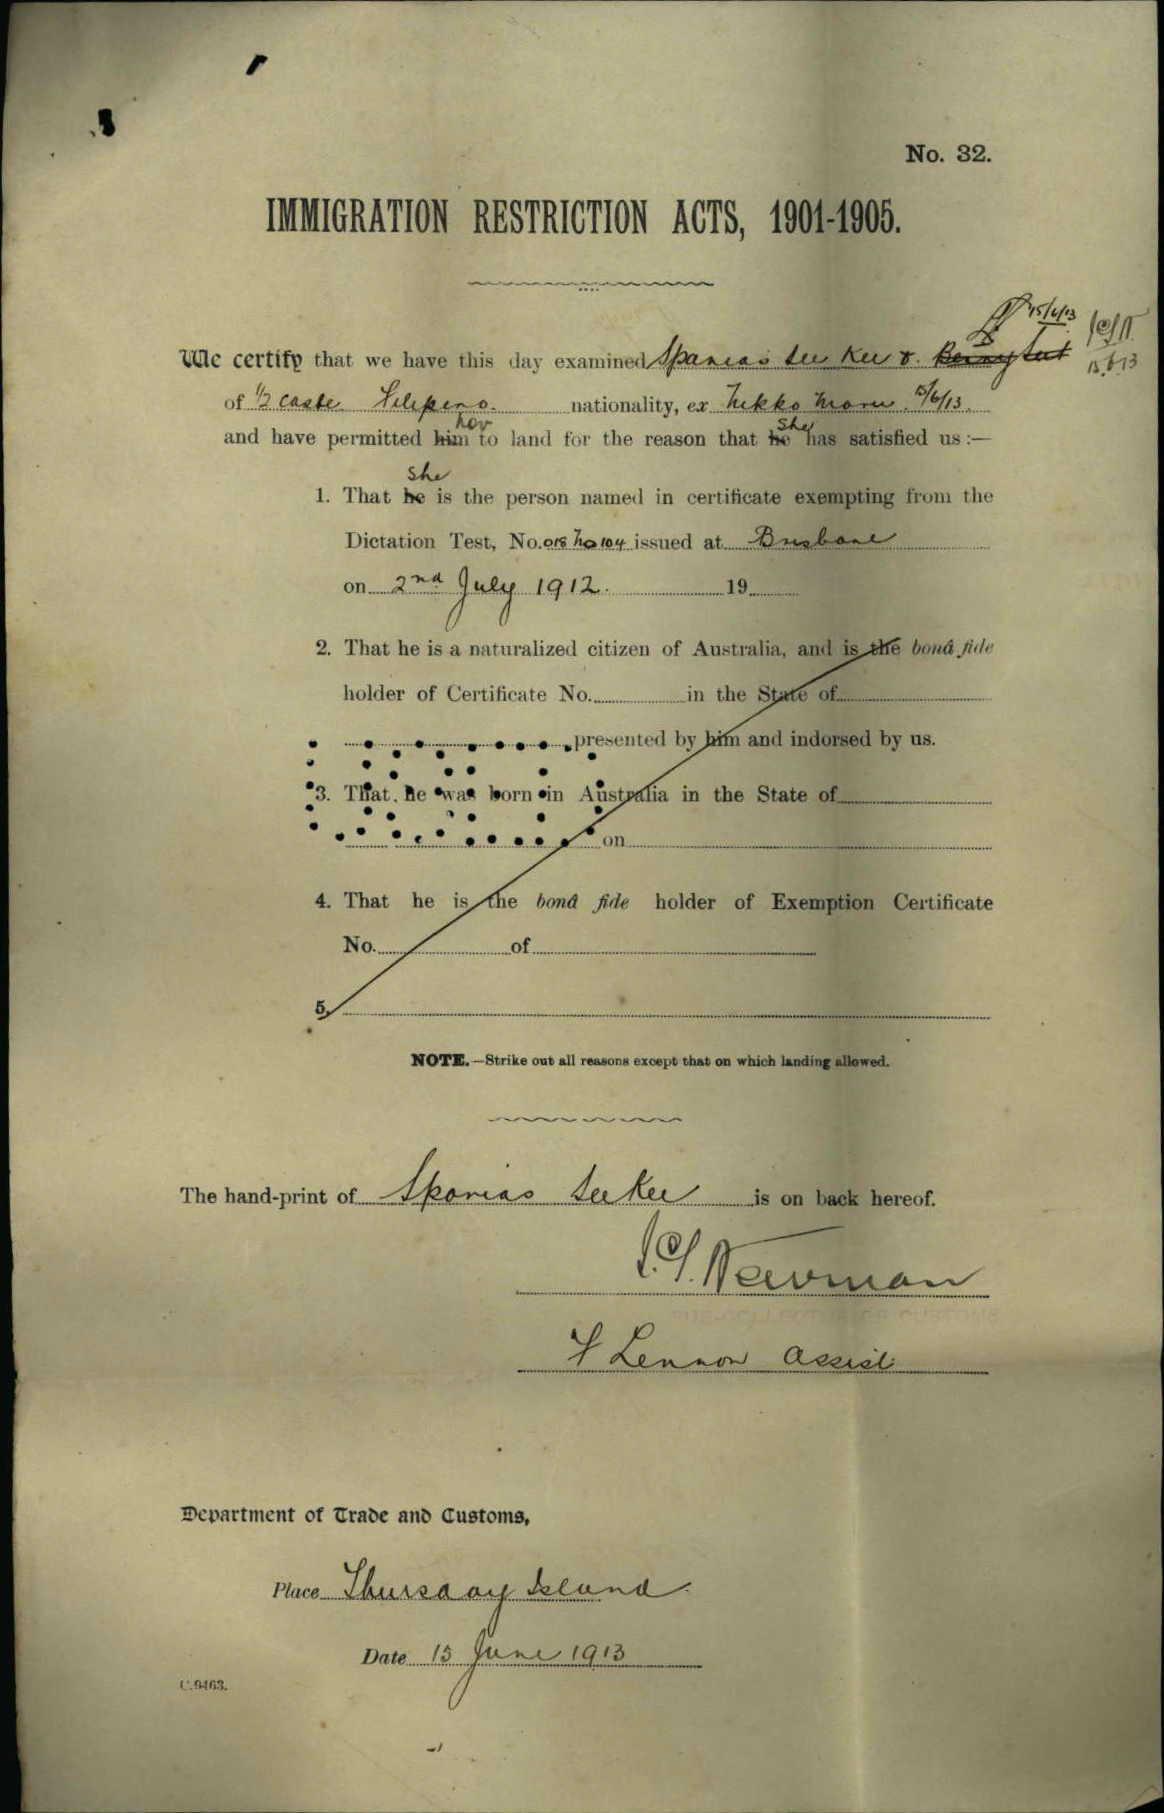 No. 32.
IMMIGRATION RESTRICTION ACTS, 1901-1905.
15/6/13
We certify that we have this day examined Spanias See Kee &
15.6.13
of 1/2 caste Filipino. nationality, ex Nikko Maru. 15/6/13.
her She
and have permitted him to land for the reason that he has satisfied us :—
She
1. That he is the person named in certificate exempting from the
Dictation Test, No. issued at Brisbane
on 2nd July 1912. 19
2. That he is a naturalized citizen of Australia, and is the bonâ fide
holder of Certificate No. in the State of
presented by him and indorsed by us.
3. That he was born in Australia in the State of
on
4. That he is the bonâ fide holder of Exemption Certificate
No. of
5.
NOTE.—Strike out all reasons except that on which landing allowed.
The hand-print of Spanias See Kee is on back hereof.
Newman
SUB-COLLECTOR OF CUSTOMS
F Lennon Assist
Department of Trade and Customs,
Place Thursday Island.
Date 15 June 1913
C.9463.